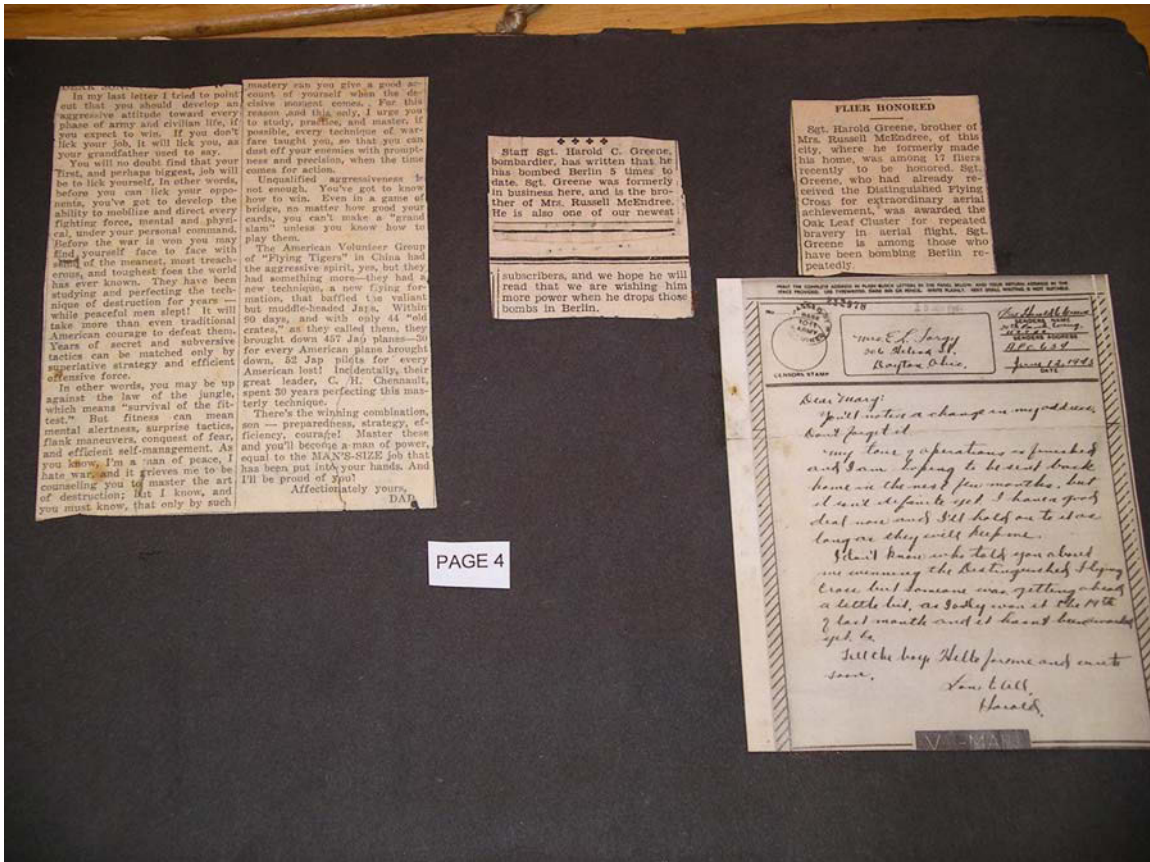 DEAR SON:
In my last letter I tried to point
out that you should develop an
aggressive attitude toward every
phase of army and civilian life, if
you expect to win. If you don't
lick your job, it will lick you, as
your grandfather used to say.
You will no doubt find that your
first, and perhaps biggest, job will
be to lick yourself. In other words,
before you can lick your oppo-
nents, you've got to develop the
ability to mobilize and direct every
fighting force, mental and physi-
cal, under your personal command.
Before the war is won you may
find yourself face to face with
some of the meanest, most treach-
erous, and toughest foes the world
has ever known. They have been
studying and perfecting the tech-
nique of destruction for years —
while peaceful men slept! It will
take more than even traditional
American courage to defeat them.
Years of secret and subversive
tactics can be matched only by
superlative strategy and efficient
offensive force.
In other words, you may be up
against the law of the jungle,
which means "survival of the fit-
test." But fitness can mean
mental alertness, surprise tactics,
flank maneuvers, conquest of fear,
and efficient self-management. As
you know, I'm a man of peace, I
hate war, and it grieves me to be
counseling you to master the art
of destruction; but I know, and
you must know, that only by such
mastery can you give a good ac-
count of yourself when the de-
cisive moment comes. For this
reason and this only, I urge you
to study, practice, and master, if
possible, every technique of war-
fare taught you, so that you can
dust off your enemies with prompt-
ness and precision, when the time
comes for action.
Unqualified aggressiveness is
not enough. You've got to know
how to win. Even in a game of
bridge, no matter how good your
cards, you can't make a "grand
slam" unless you know how to
play them.
The American Volunteer Group
of "Flying Tigers" in China had
the aggressive spirit, yes, but they
had something more—they had a
new technique, a new flying for-
mation, that baffled the valiant
but muddle-headed Japs. Within
90 days, and with only 44 "old
crates," as they called them, they
brought down 457 Jap planes—30
for every American plane brought
down, 52 Jap pilots for every
American lost! Incidentally, their
great leader, C. H. Chennault,
spent 30 years perfecting this mas-
terly technique.
There's the winning combination,
son — preparedness, strategy, ef-
ficiency, courage! Master these
and you'll become a man of power,
equal to the MAN'S-SIZE job that
has been put into your hands. And
I'll be proud of you!
Affectionately yours,
DAD
Staff Sgt. Harold C. Greene,
bombardier, has written that he
has bombed Berlin 5 times to
date. Sgt. Greene was formerly
in business here, and is the bro-
ther of Mrs. Russell McEndree.
He is also one of our newest
subscribers, and we hope he will
read that we are wishing him
more power when he drops those
bombs in Berlin.
FLIER HONORED
Sgt. Harold Greene, brother of
Mrs. Russell McEndree, of this
city, where he formerly made
his home, was among 17 fliers
recently to be honored. Sgt.
Greene, who had already re-
ceived the Distinguished Flying
Cross for extraordinary aerial
achievement, was awarded the
Oak Leaf Cluster for repeated
bravery in aerial flight. Sgt.
Greene is among those who
have been bombing Berlin re-
peatedly.
PRINT THE COMPLETE ADDRESS IN PLAIN BLOCK LETTERS IN THE PANEL BELOW, AND YOUR RETURN ADDRESS IN THE
SPACE PROVIDED.
No.
CENSOR'S STAMP
Mrs E. L.
Dayton Ohio.
SENDER'S NAME
SENDER'S ADDRESS
APO 634
June 12, 1943
DATE
Dear Mary:
You'll notice a change in my address,
Don't forget it
My tour of operations is finished
and I am hoping to be sent back
home in the next few months, but
it isn't definite yet. I have a good
deal now and I'll hold on to it as
long as they will keep me.
I don't know who told you about
me winning the Distinguished Flying
Cross but someone was getting ahead
a little bit, as I only won it the 14th
of last month and it hasn't been
yet.
Tell the boys Hello for me and write
soon.
Love to All,
Harold.
V-MAIL
PAGE 4